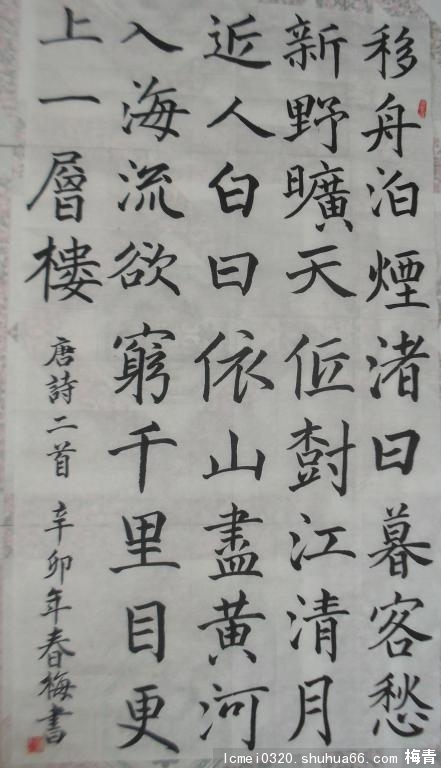 移舟泊煙渚日暮客愁
新野曠天低樹江清月
近人白日依山盡黄河
入海流欲窮千里目更
上一層樓
唐詩二首 辛卯年春梅書
lcmei0320.shuhua66.com 梅青